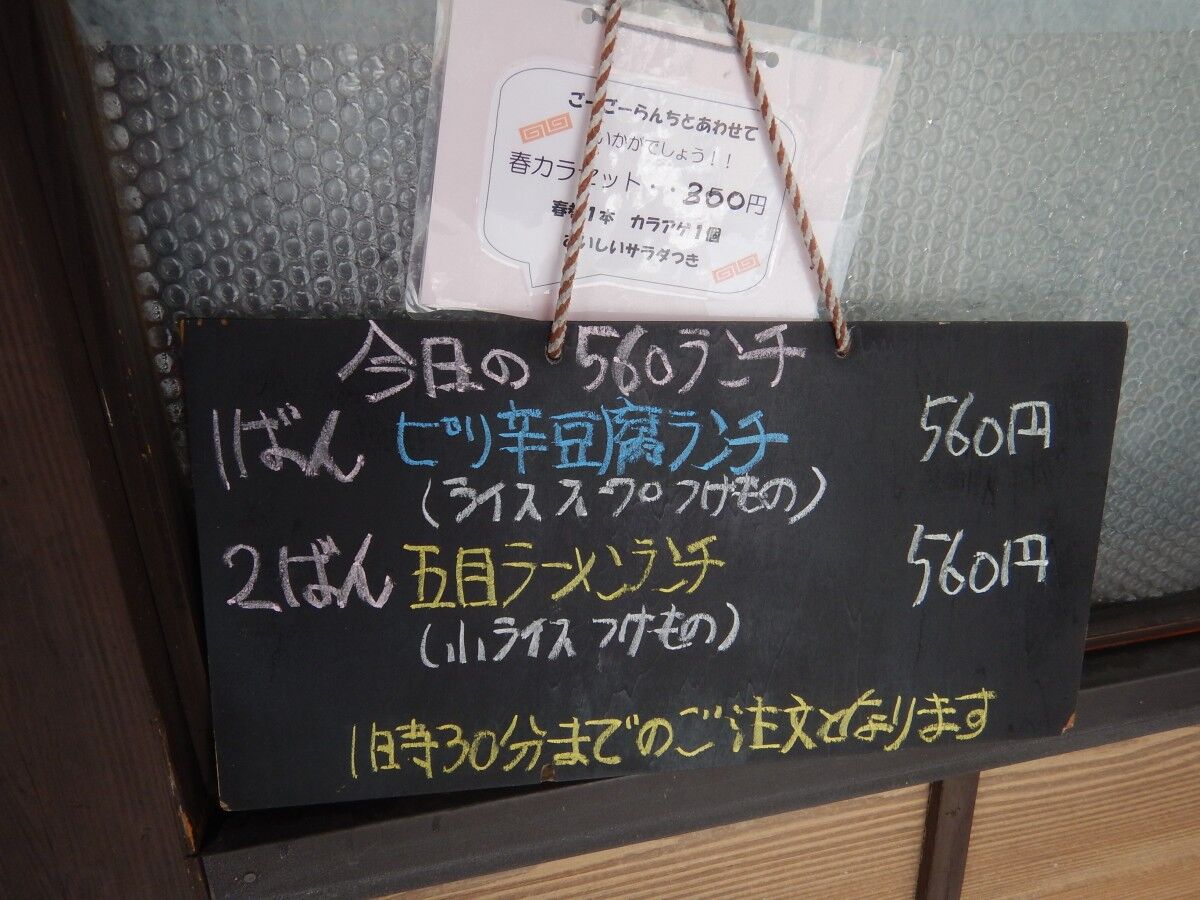 ごーごーらんちとあわせて
いかがでしょう！！
春カラセット・・350円
春巻1本 カラアゲ1個
おいしいサラダつき
今日の 560ランチ
1ばん ピリ辛豆腐ランチ 560円
(ライス スープ つけもの)
2ばん 五目ラーメンランチ 560円
(小ライス つけもの)
1時30分までのご注文となります